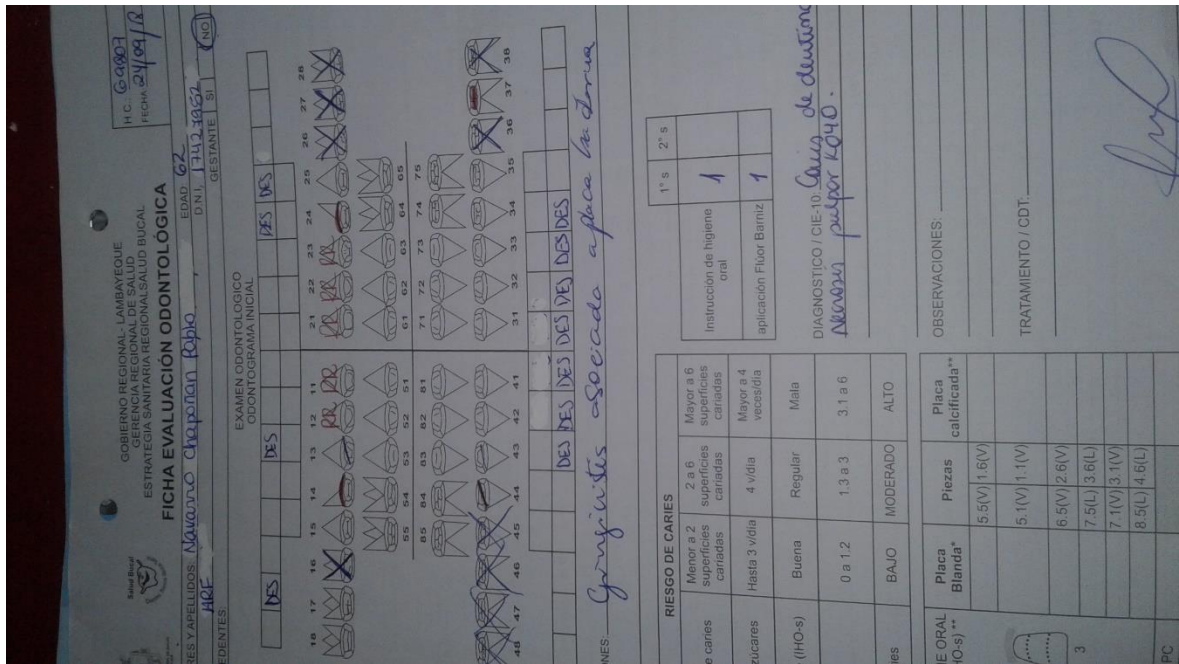 GOBIERNO REGIONAL- LAMBAYEQUE
GERENCIA REGIONAL DE SALUD
ESTRATEGIA SANITARIA REGIONALSALUD BUCAL
FICHA EVALUACIÓN ODONTOLÓGICA
Salud Bucal
H.C.: 69807
FECHA 24/09/
RES Y APELLIDOS: Navarro Chapoñan Pablo EDAD 62
HRF D.N.I. 17427952
EDENTES: GESTANTE SI NO
EXAMEN ODONTOLOGICO
ODONTOGRAMA INICIAL
DES DES DES DES
18 17 16 15 14 13 12 11 21 22 23 24 25 26 27 28
RR RR RR RR RR
55 54 53 52 51 61 62 63 64 65
85 84 83 82 81 71 72 73 74 75
48 47 46 45 44 43 42 41 31 32 33 34 35 36 37 38
DES DES DES DES DES DES DES
NES: Gingivitis asociada a placa
RIESGO DE CARIES
e caries Menor a 2 superficies cariadas 2 a 6 superficies cariadas Mayor a 6 superficies cariadas
zúcares Hasta 3 v/día 4 v/día Mayor a 4 veces/día
(IHO-s) Buena Regular Mala
0 a 1.2 1.3 a 3 3.1 a 6
es BAJO MODERADO ALTO
1° s 2° s
Instrucción de higiene oral 1
aplicación Flúor Barniz 1
DIAGNOSTICO / CIE-10: Caries de dentina
Necrosis pulpar K040.
OBSERVACIONES:
TRATAMIENTO / CDT:
NE ORAL
HO-s) ** Placa Blanda* Piezas Placa calcificada**
5.5(V) 1.6(V)
5.1(V) 1.1(V)
6.5(V) 2.6(V)
7.5(L) 3.6(L)
7.1(V) 3.1(V)
8.5(L) 4.6(L)
3
PC